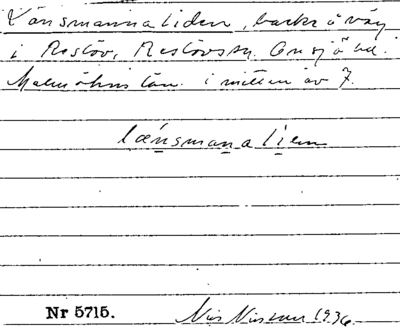 Länsmannaliden, backe å väg
i Reslöv, Reslövs sn. Onsjö hd.
Malmöhus län. i mitten av 7.
lænsmanaliem
Nr 5715.
Nils Nilsson 1936.